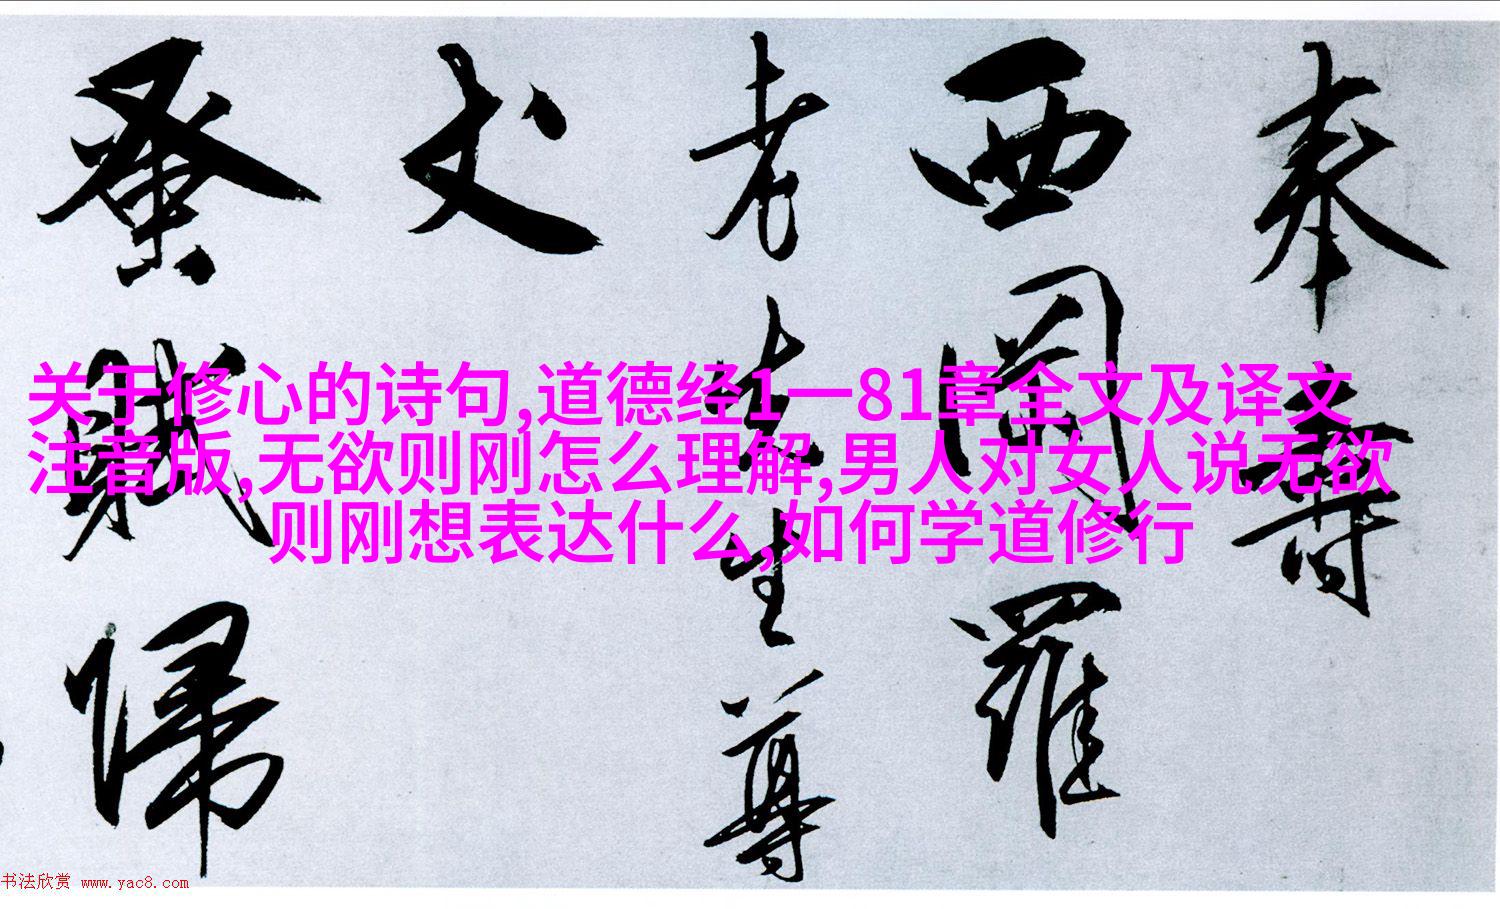 奉壽
西園羅
老先生尊
丈
蚤賦歸
关于修心的诗句,道德经1一81章全文及译文
注音版,无欲则刚怎么理解,男人对女人说无欲
则刚想表达什么,如何学道修行
书法欣赏 www.yac8.com